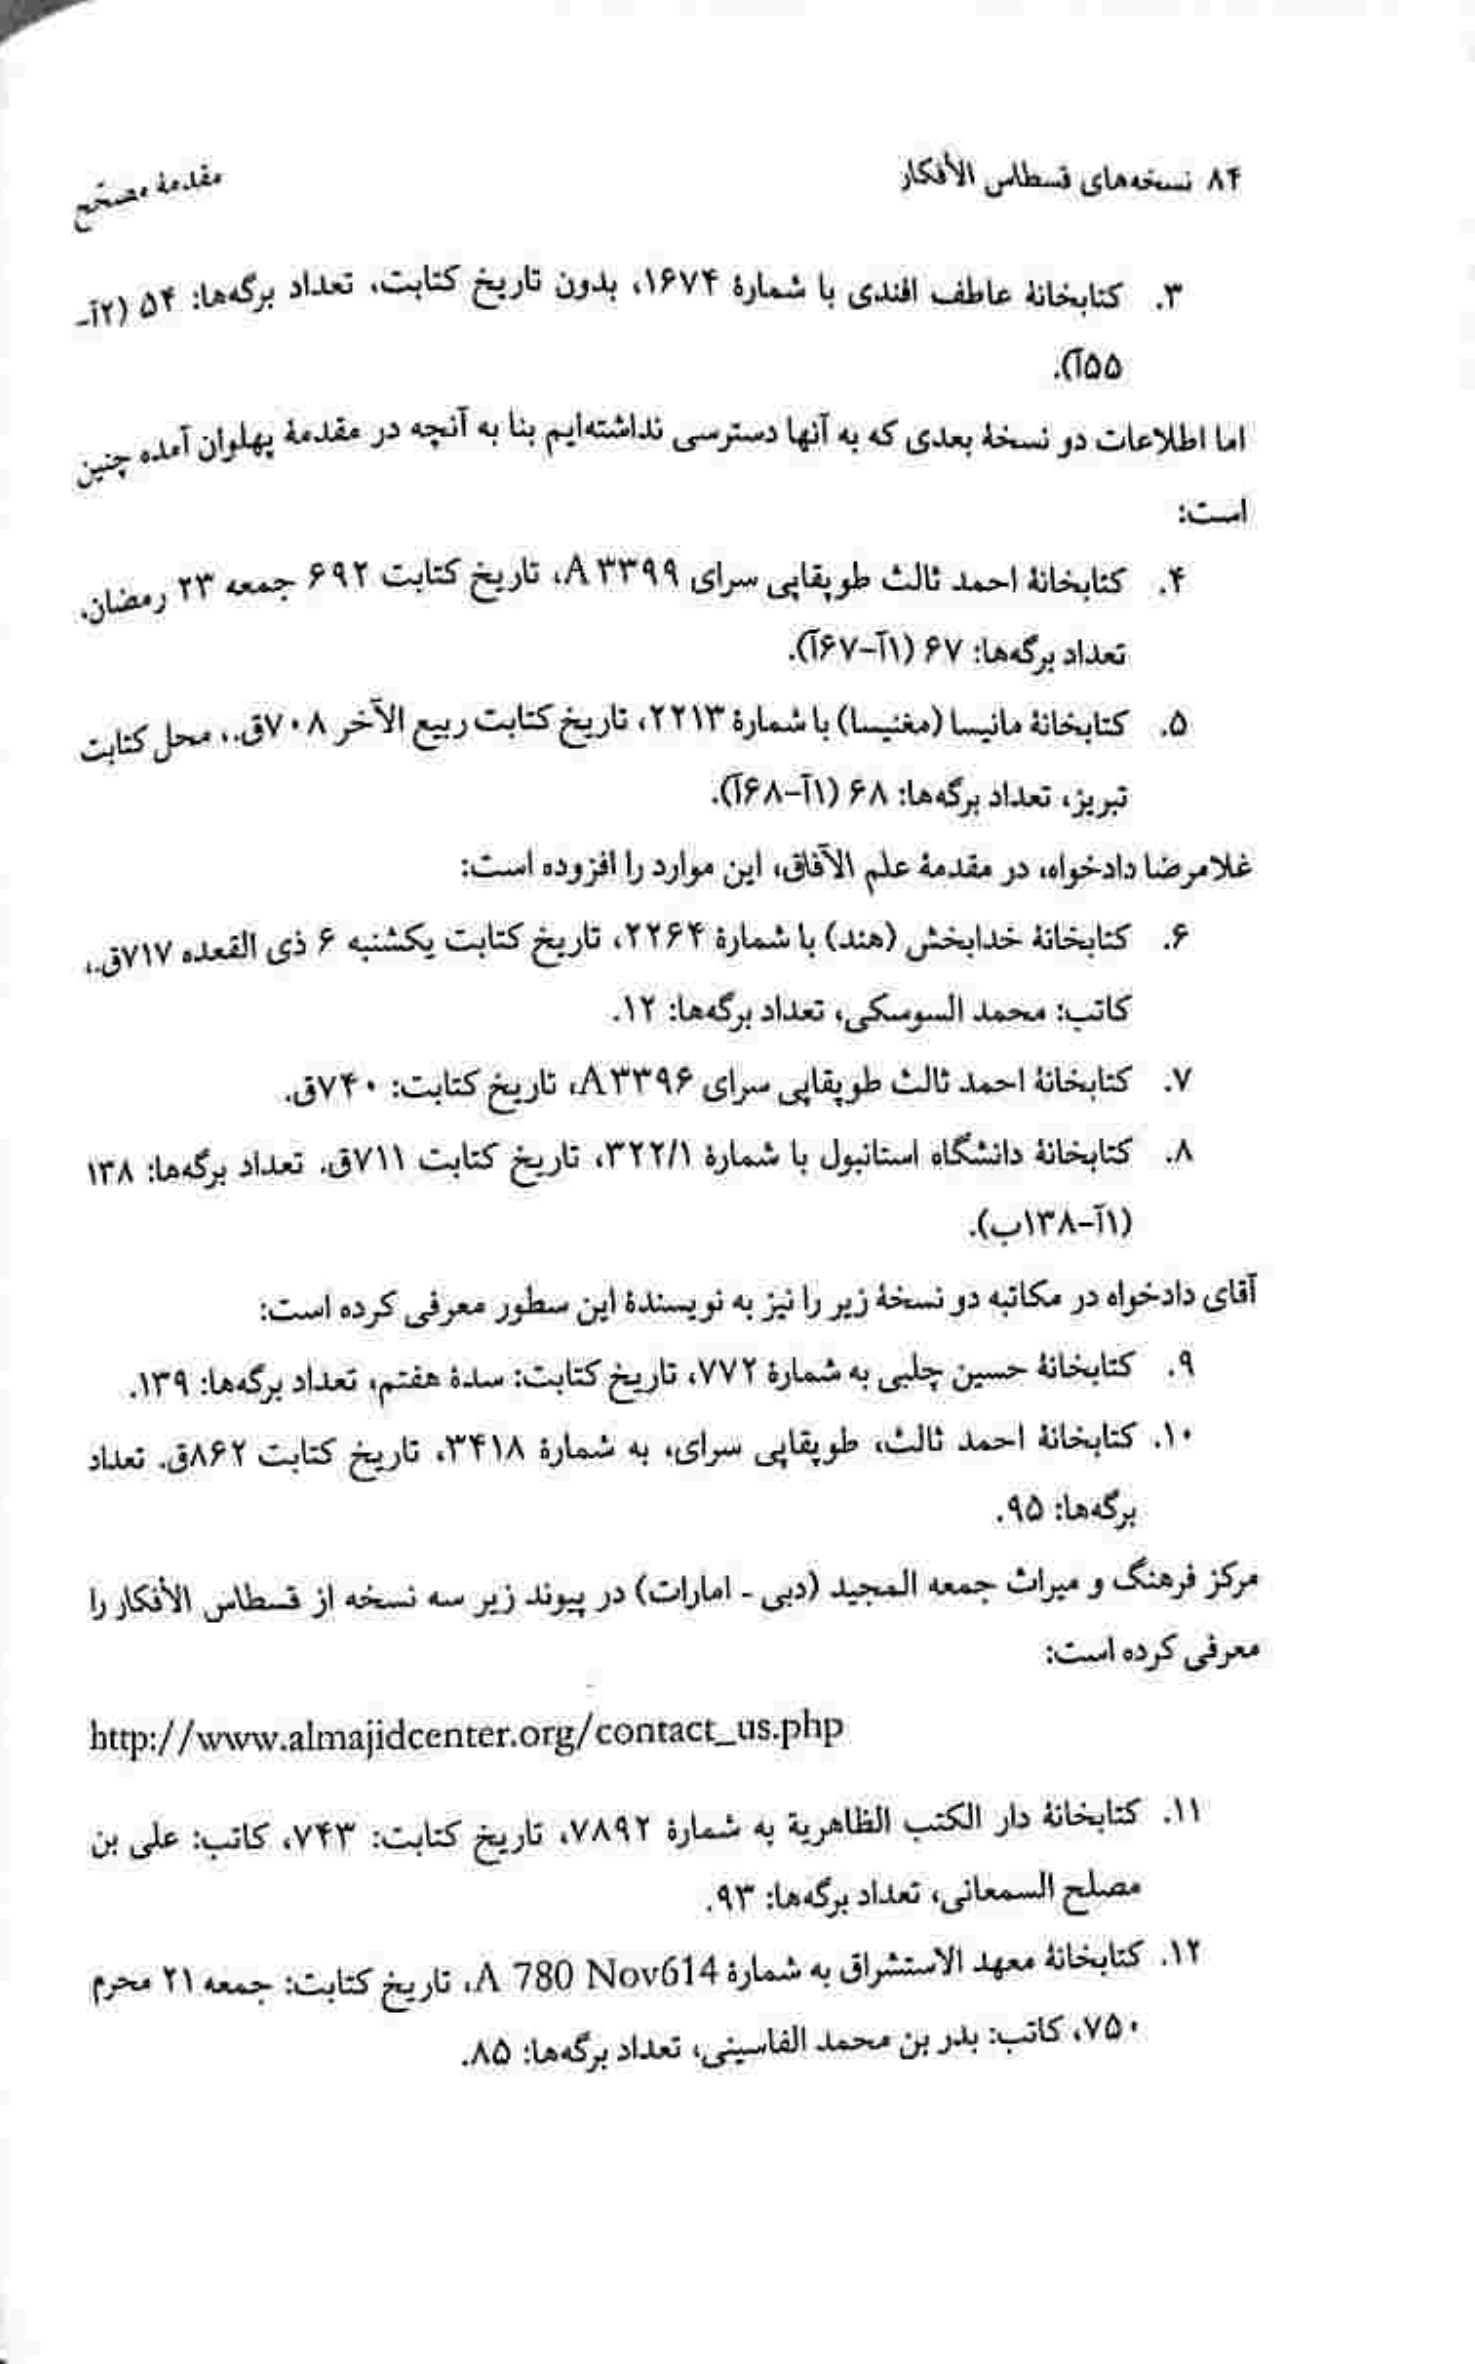 ۸۴ نسخه‌های قسطاس الأفکار
مقدمهٔ مصحّح
۳. کتابخانهٔ عاطف افندی با شمارهٔ ۱۶۷۴، بدون تاریخ کتابت، تعداد برگه‌ها: ۵۴ (۲آ-
۵۵آ).
اما اطلاعات دو نسخهٔ بعدی که به آنها دسترسی نداشته‌ایم بنا به آنچه در مقدمهٔ پهلوان آمده چنین
است:
۴. کتابخانهٔ احمد ثالث طوپقاپی سرای A ۳۳۹۹، تاریخ کتابت ۶۹۲ جمعه ۲۳ رمضان،
تعداد برگه‌ها: ۶۷ (۱آ-۶۷آ).
۵. کتابخانهٔ مانیسا (مغنیسا) با شمارهٔ ۲۲۱۳، تاریخ کتابت ربیع الآخر ۷۰۸ق.، محل کتابت
تبریز، تعداد برگه‌ها: ۶۸ (۱آ-۶۸آ).
غلامرضا دادخواه، در مقدمهٔ علم الآفاق، این موارد را افزوده است:
۶. کتابخانهٔ خدابخش (هند) با شمارهٔ ۲۲۶۴، تاریخ کتابت یکشنبه ۶ ذی القعده ۷۱۷ق.،
کاتب: محمد السوسکی، تعداد برگه‌ها: ۱۲.
۷. کتابخانهٔ احمد ثالث طوپقاپی سرای A۳۳۹۶، تاریخ کتابت: ۷۴۰ق.
۸. کتابخانهٔ دانشگاه استانبول با شمارهٔ ۳۲۲/۱، تاریخ کتابت ۷۱۱ق. تعداد برگه‌ها: ۱۳۸
(۱آ-۱۳۸ب).
آقای دادخواه در مکاتبه دو نسخهٔ زیر را نیز به نویسندهٔ این سطور معرفی کرده است:
۹. کتابخانهٔ حسین چلبی به شمارهٔ ۷۷۲، تاریخ کتابت: سدهٔ هفتم، تعداد برگه‌ها: ۱۳۹.
۱۰. کتابخانهٔ احمد ثالث، طوپقاپی سرای، به شمارهٔ ۳۴۱۸، تاریخ کتابت ۸۶۲ق. تعداد
برگه‌ها: ۹۵.
مرکز فرهنگ و میراث جمعه المجید (دبی - امارات) در پیوند زیر سه نسخه از قسطاس الأفکار را
معرفی کرده است:
http://www.almajidcenter.org/contact_us.php
۱۱. کتابخانهٔ دار الکتب الظاهریة به شمارهٔ ۷۸۹۲، تاریخ کتابت: ۷۴۳، کاتب: علی بن
مصلح السمعانی، تعداد برگه‌ها: ۹۳.
۱۲. کتابخانهٔ معهد الاستشراق به شمارهٔ A 780 Nov614، تاریخ کتابت: جمعه ۲۱ محرم
۷۵۰، کاتب: بدر بن محمد الفاسینی، تعداد برگه‌ها: ۸۵.